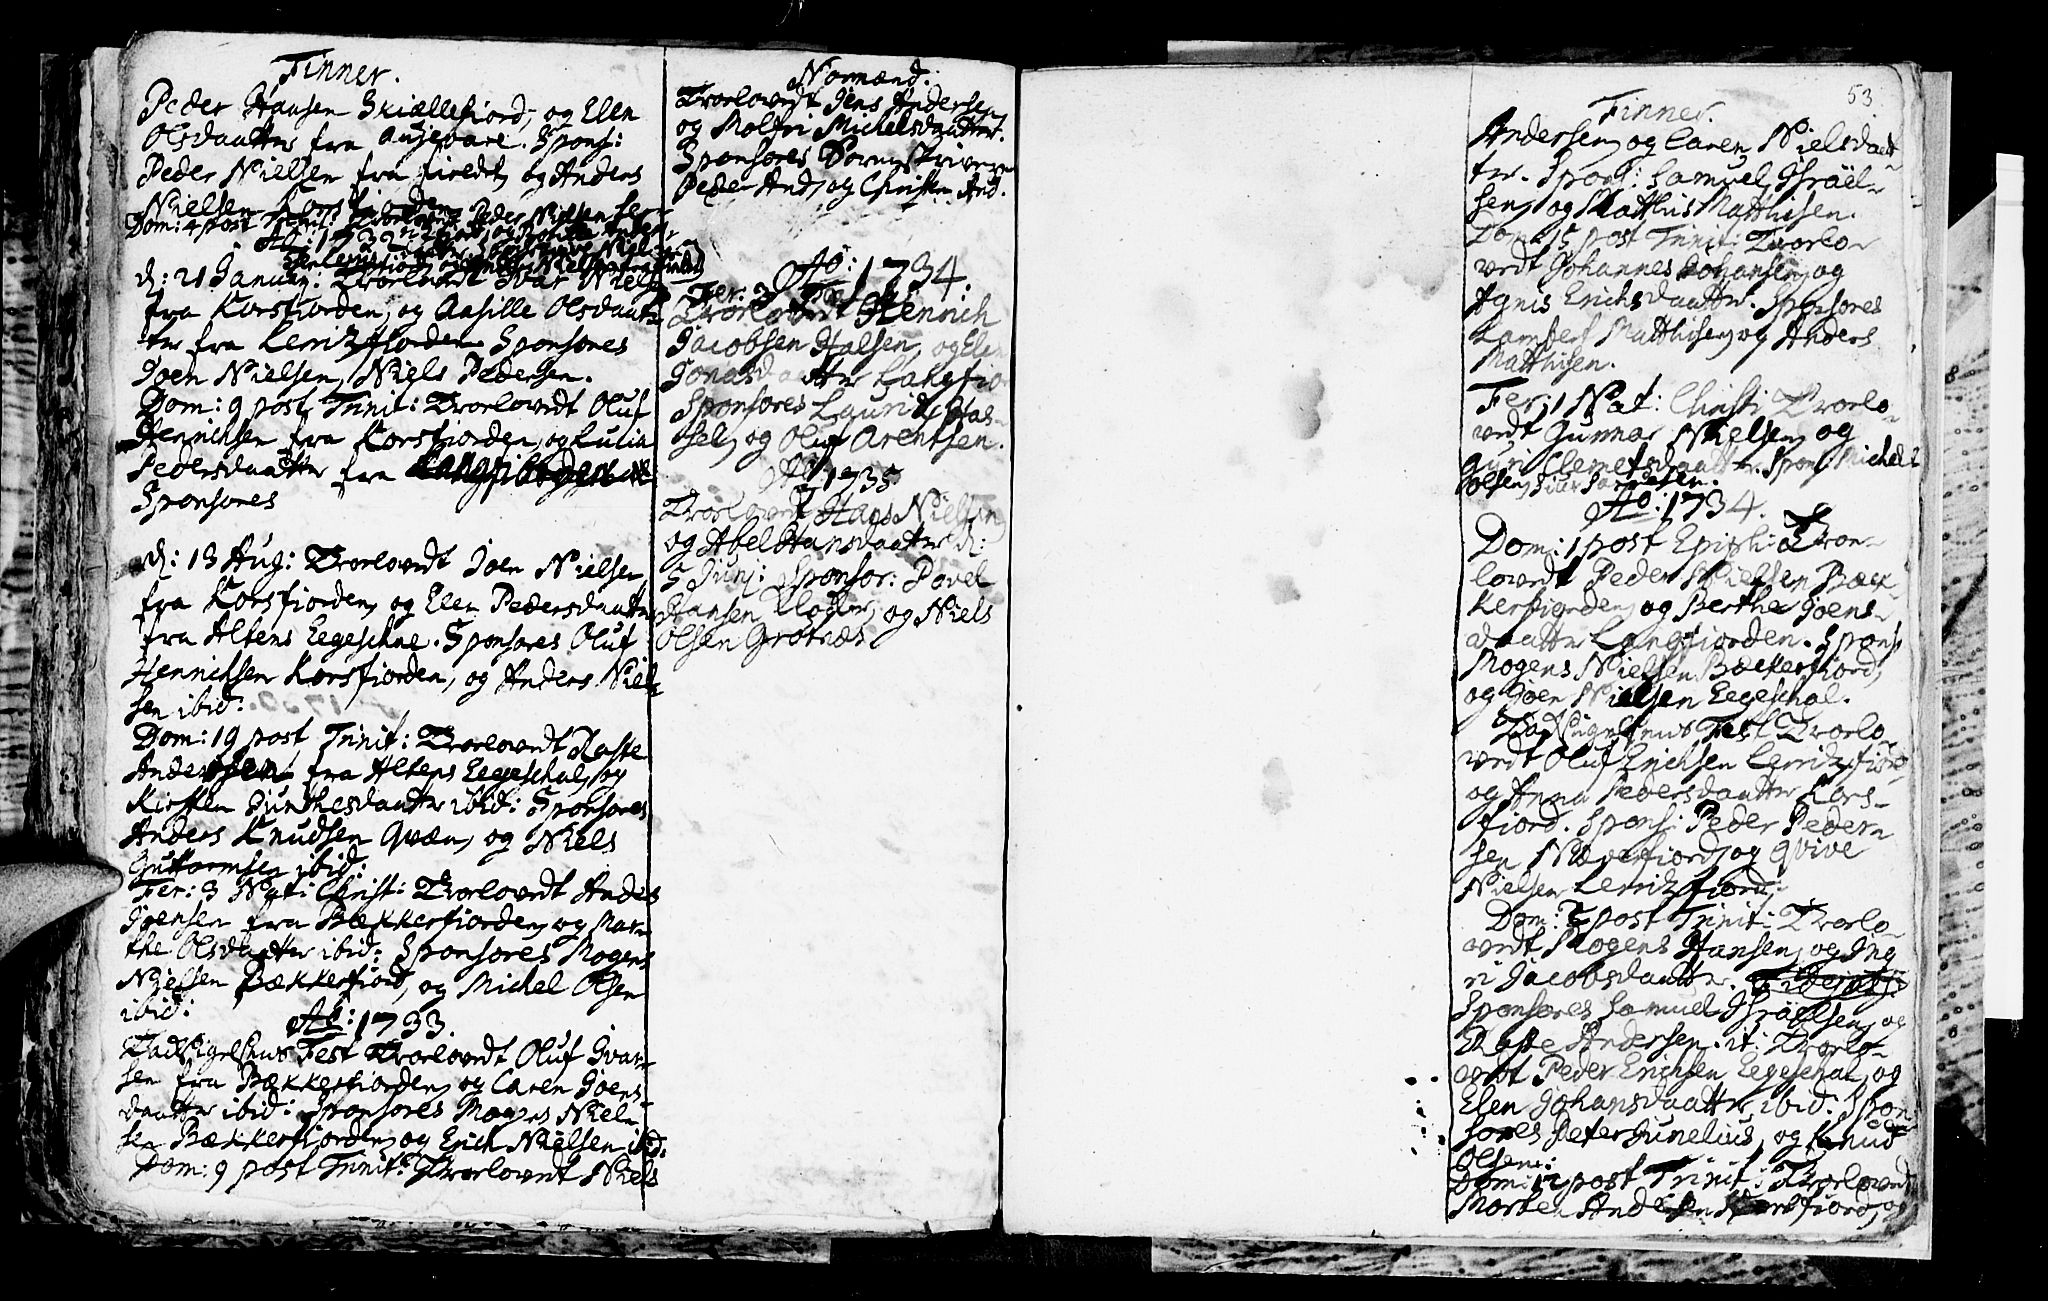 Finner.
Peder Hansen Skiællefiord, og Elen
Olsdaatter fra
Peder Nielsen fra og Anders
Nielsen Korsfiorden
Dom: 4 post Peder Nielsen
Ao: 1732
d: 21 January. Troelovedt Ivar Niels
fra Korsfiorden, og Aasille Olsdaat
ter fra Lerritzfiorden Sponsores
Joen Nielsen, Niels Pedersen.
Dom: 9 post Trinit: Troelovedt Oluf
Henrichsen fra Korsfiorden, og Lucia
Pedersdaatter fra
Sponsores
d: 13 Aug: Troelovedt Joen Nielsen
fra Korsfiorden, og Elen Pedersdaatter
fra Altens Eegeschne. Sponsores Oluf
Henrichsen Korsfiorden, og Anders Niel-
sen ibid:
Dom: 19 post Trinit: Troelovedt Raste
Andersen fra Altens Eegeschal, og
Kirsten Gunthesdaatter ibid: Sponsores
Anders Knudsen Qvæn, og Niels
Guttormsen ibid:
Fer: 3 Nati: Christ: Troelovedt Anders
Joensen fra Bækkerfiorden, og Mar-
the Olsdaatter ibid: Sponsores Mogens
Nielsen Bækkerfiord, og Michel Olsen
ibid:
Ao: 1733.
Fest Troelovedt Oluf Ivar-
sen fra Bækkerfiorden, og Caren Joens-
daatter ibid: Sponsores Mogens Niel-
sen Bækkerfiorden, og Erich Nielsen ibid.
Dom: 9 post Trinit: Troelovedt Niels
Normænd.
Troelovedt Jens Andersen
og Molfri Michelsdaatter.
Sponsores Sorenskriveren
Peder And: og Christen And.
Ao: 1734.
Fer: 3
Troelovedt Henrich
Jacobsen Halsen, og Elen
Jonasdaatter Langfior
Sponsores Lauridz Has-
sel, og Oluf Arentsen.
Ao: 1735
Troelovedt Hans Nielsen
og Abel Hansdaatter d:
5 Junj: Sponsor: Povel
Hansen Kloster, og Niels
Olsen Grotnæs
53
Finner.
Andersen, og Caren Nielsdaat
ter. Spons: Samuel Israel-
sen, og Matthis Matthisen.
Dom: 15 post Trinit: Troelo-
vedt Johannes Johansen, og
Agnis Erichsdaatter. Sponsores
Lambert Matthisen, og Anders
Matthisen.
Fer: 1 Nat: Christi Troelo-
vedt Gunnar Nielsen, og
Guri Clemetsdaatter. Spons: Michel
Olsen,
Ao: 1734.
Dom: 1 post Epiph: Troe-
lovedt Peder Nielsen Bæk-
kerfiorden, og Berthe Joens-
daatter Langfiorden. Spons
Mogens Nielsen Bækkerfiord,
og Joen Nielsen Eegeschal.
Fest Troelo
vedt Oluf Erichsen Lerritzfiord,
og Anna Pedersdaatter Kors-
fiord. Spons: Peder Peder-
sen Næverfiord, og Qvive
Nielsen Lerritzfiord.
Dom: post Trinit: Troelo-
vedt Mogens Hansen, og Ing
ri Jacobsdaatter.
Sponsores Samuel Israelsen, og
Raste Andersen. it: Troelo-
vedt Peder Erichsen Eegeschal, og
Elen Johansdaatter ibid. Spon-
sores Peter Junelius, og Knud
Olsen:
Dom: 12 post Trinit: Troelovedt
Morten Andersen Korsfiord, og